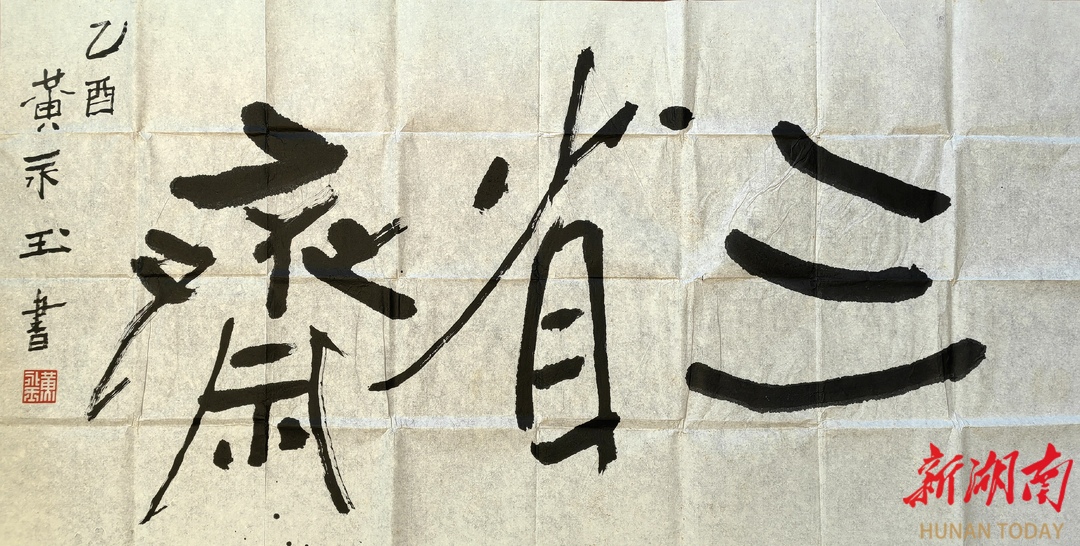 三省齋
乙酉
黄永玉書
黄永玉
新湖南
HUNAN TODAY